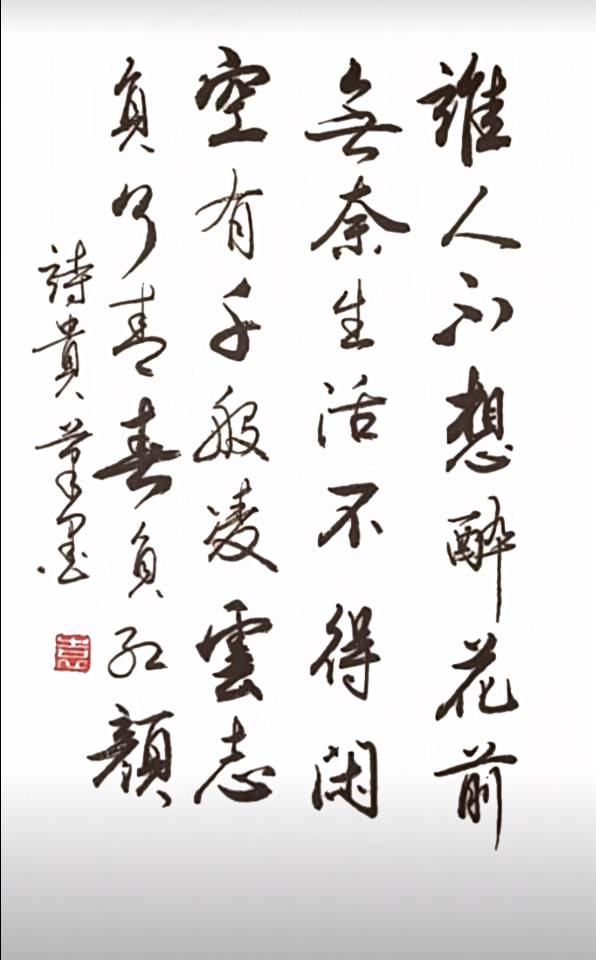 誰人不想醉花前
無奈生活不得闲
空有千般凌雲志
負了青春負红顏
詩貴筆墨